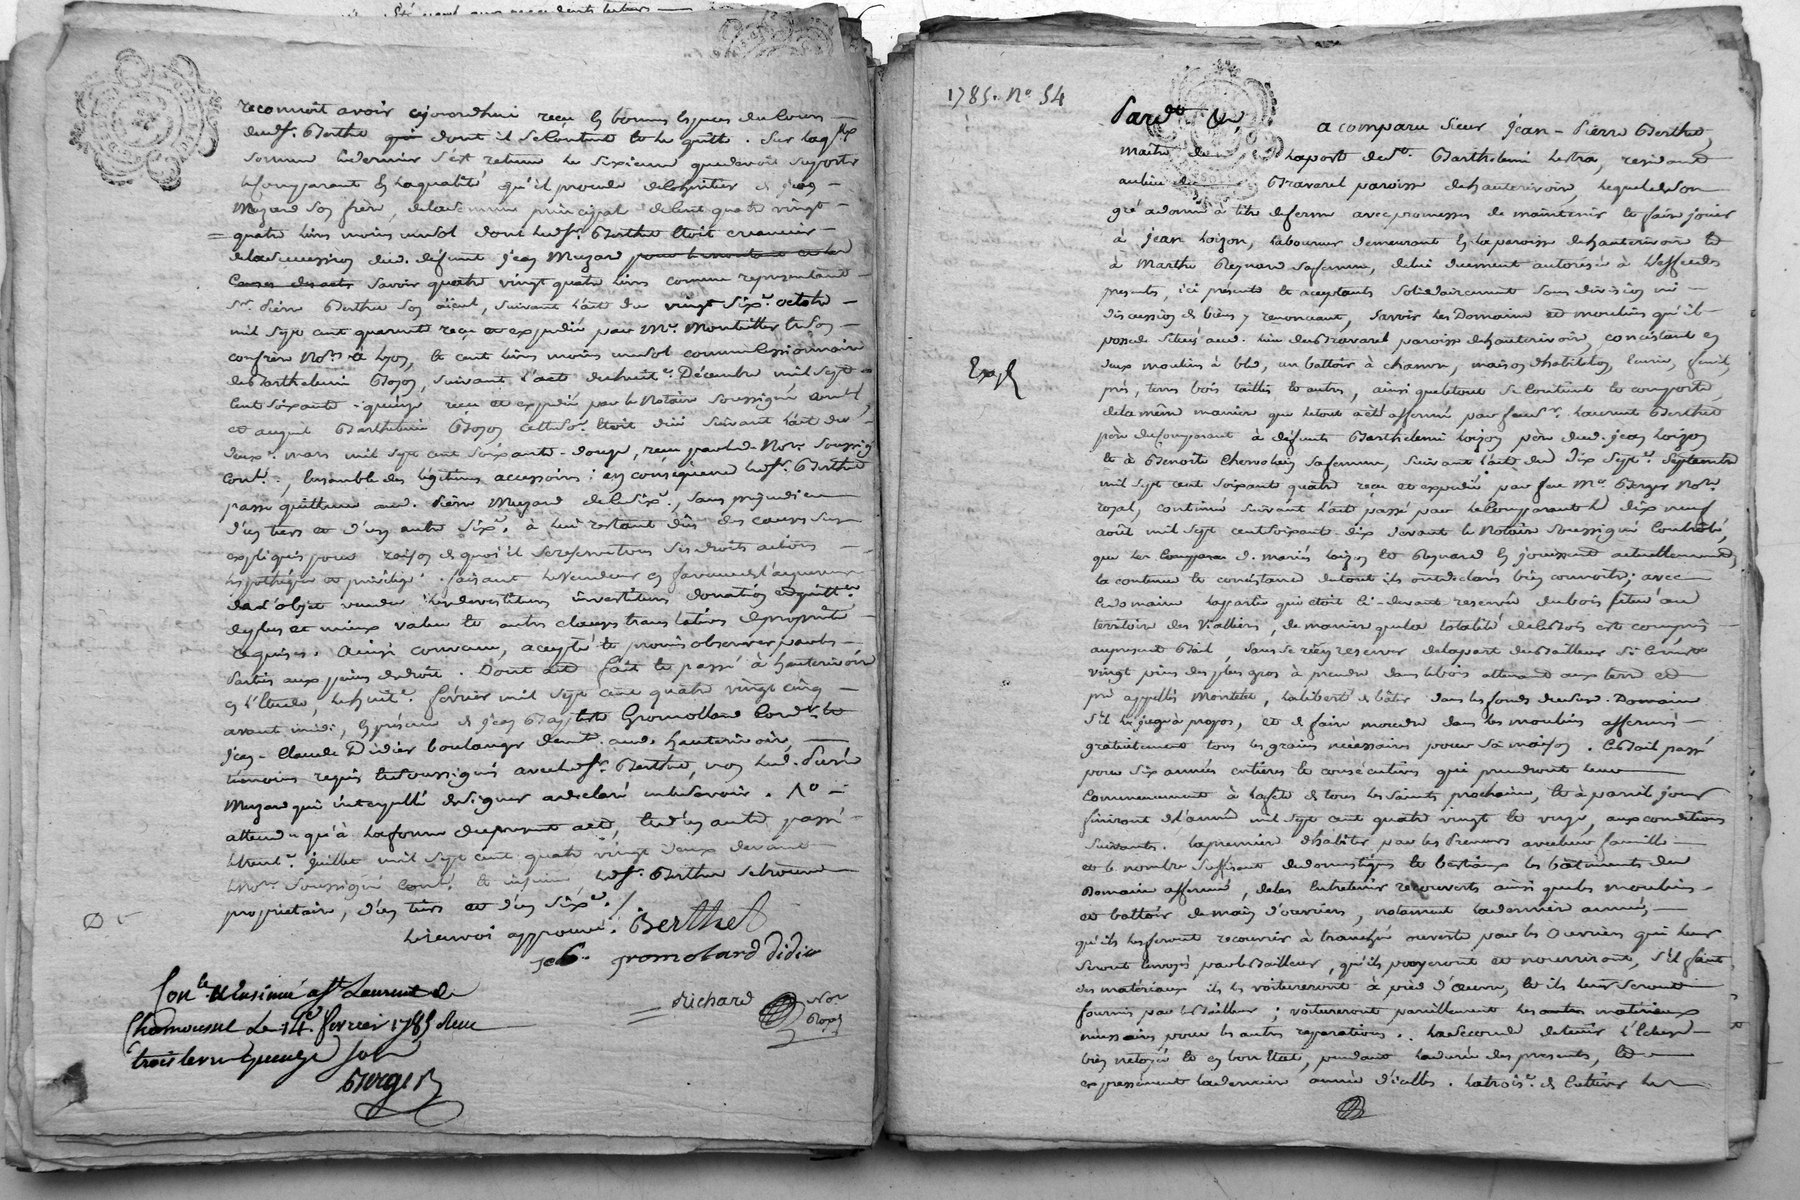 reconnoit avoir cejourdhui reçu en bonnes especes du cours
dudsr. Berthet qui dont il se contente et le quitte. Sur laqlle
somme ledernier s'est retenu le sixieme que devoit suporter
le comparant en la qualité qu'il procede d'heritier de jean
Muzard son frère, de la somme principal de cent quatre vingt
quatre livres moins un sol dont ledsr. Berthet etoit creancier
de la succession dud. défunt jean Muzard
savoir quatre vingt quatre livres comme representant
sr. Pierre Berthet son aieul, suivant l'acte du vingt sixe. octobre
mil sept cent quarante reçu et expedié par Me. Montellier et son
confrère Nores. à Lyon, et cent livres moins un sol comme cessionnaire
de Barthelemi Bojon, suivant l'acte du huite. Décembre mil sept
cent soixante quinze reçu et expedié par le Notaire soussigné
et auquel Barthelemi Bojon cette se. etoit düe suivant l'acte du
deuxe. mars mil sept cent soixante-douze, reçu par led. Nore. soussigné
conlé., ensemble des légitimes accessoires; en conséquence ledsr. Berthet
passe quittance aud. Pierre Muzard de le sixe., sans préjudice
d'un tiers et d'un autre sixe. à lui restant dûs des causes sus
expliqués pour raison de quoi il se reserve tous ses droits actions
hypothéque et privilége. faisant le vendeur en faveur de l'aquereur
de l'objet vendu les devestiture investiture donation
de plus et mieux value et autres clauses translatives de proprieté
requises. Ainsi convenu, accepté et promis observer par les
parties aux peines de droit. Dont acte fait et passé à hauterivoire
en l'Etude, le huite. février mil sept cent quatre vingt cinq
avant midi, en présence de jean Bajtiste Gromollard Cordr. et
jean-Claude Didier boulanger demt. aud. hauterivoire
temoins requis et soussignés avec ledsr. Berthet, non led. Pierre
Muzard qui interpellé de signer a declaré ne le savoir.
attendu qu'à la forme du present acte, et d'un autre passé
le trente. juillet mil sept cent quatre vingt deux devant
le Nore. soussigné conlé. et insinué ledsr. Berthet se trouve
proprietaire, d'un tiers et d'un sixe./.
le renvoi approuvé. Berthet
jcb. gromolard didier
Richard Nore Royal
Conle. et insinué a st. Laurent de
Chamousset le 14e. fevrier 1785 Recu
trois livres quinze sols
Berger
1785. No. 54
Pardt. Ut
a comparu sieur jean-Pierre Berthet,
Barthelemi Lestra, residant
au lieu de Bravarel paroisse de hauterivoire, lequel de son
gré a donné à titre de ferme avec promesses de maintenir et faire jouir
à jean Loizon, laboureur demeurant en la paroisse de hauterivoire et
à Marthe Reynard sa femme, de lui duement autorisée à l'effet des
presentes, ici présents et acceptants solidairement sans division ni
discussion de biens y renoncant, savoir les Domaine et moulins qu'il
possede situés aud. lieu de Bravarel paroisse de hauterivoire, consistant en
deux moulins à bled, un battoir à chanvre, maison d'habitation, ecurie, fenil,
prés, terres bois taillis et autres, ainsi que le tout se contient et comporte,
de la même maniere que le tout a été affermé par feu sr. Laurent Berthet
père du comparant à défunts Barthelemi Loizon père dud. jean Loizon
et à Benoite Chevolein sa femme, suivant l'acte du dix septe. septembre
mil sept cent soixante quatre reçu et expedié par feu Me. Berger Nore.
royal, continué suivant l'acte passé par le comparant le dix neuf
août mil sept cent soixante-dix devant le Notaire soussigné Controlé,
que les d. mariés Loizon et Reynard en jouissent actuellement,
la contenue et consistance du tout ils ont declaré bien connoitre; avec
le domaine la partie qui étoit ci-devant reservée du bois situé au
territoire des Vialliers, de maniere que la totalité de le bois est compris
au present Bail, sans se rien reserver de la part du Bailleur si ce n'est
vingt pieds des plus gros à prendre dans le bois attenant aux terre et
pré appellés Montelet, la liberté de bâtir dans les fonds dudit. Domaine
s'il le juge à propos, et de faire moudre dans les moulins affermés
gratuitement tous les grains nécessaires pour sa maison. Ce Bail passé
pour six années entieres et consécutives qui prendront leur
commencement à la fête de tous les saints prochaine, et à pareil jour
finiront de l'année mil sept cent quatre vingt et onze, aux conditions
suivants. la premiere d'habiter par les Preneurs avec leur famille
et le nombre suffisant de domestiques et bestiaux les bâtiments du
Domaine affermé, de les Entretenir recouverts ainsi que les moulins
et battoir de main d'ouvriers, notament la derniere année,
qu'ils les feront recouvrir à tranchée ouverte par les Ouvriers qui leur
seront envoyés par le Bailleur, qu'ils payeront et nourriront, s'il faut
des matériaux ils les voitureront à pied d'œuvre, et ils leur seront
fournis par le Bailleur; voitureront pareillement les autres matériaux
nécessaires pour les autres reparations. la seconde de tenir l'Ecluse
bien netoyée et en bon Etat, pendant la durée des presentes, et
expressement la derniere année d'icelles. la troise. de cultiver les
Exp.